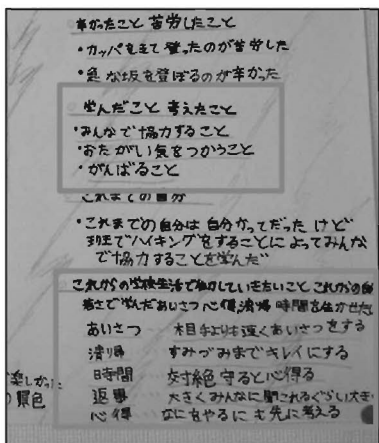 辛かったこと 苦労したこと
・カッパをきて登ったのが苦労した
・急な坂を登ぼるのが辛かった
学んだこと 考えたこと
・みんなで協力すること
・おたがい気をつかうこと
・がんばること
これまでの自分
・これまでの自分は自分かってだったけど
班でハイキングをすることによってみんな
で協力することを学んだ
これからの学校生活で していきたいこと これからの
で学んだあいさつ 心得 清掃 時間を生かせた
あいさつ 相手よりも速くあいさつをする
清掃 すみづみまでキレイにする
時間 絶対守ると心得る
返事 大きくみんなに聞これるぐらい大き
心得 なにをやるにも先に考える
楽しかった
景色